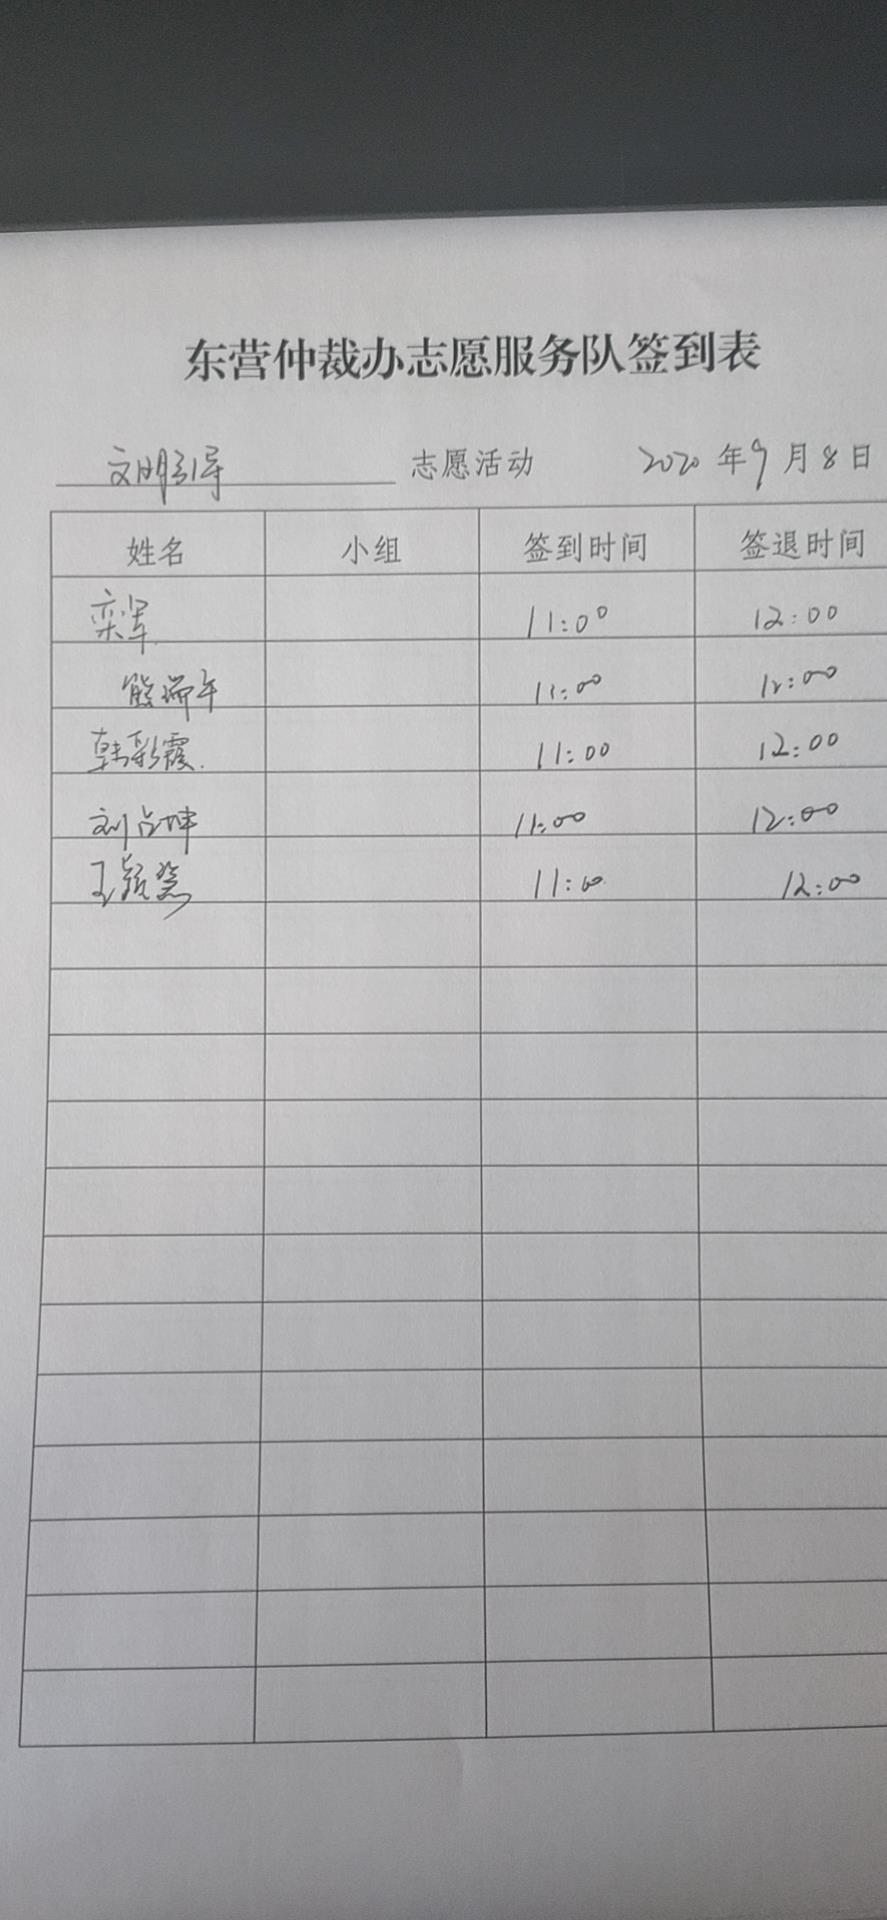 东营仲裁办志愿服务队签到表
文明引导 志愿活动 2020 年 9 月 8 日
姓名 小组 签到时间 签退时间
栾军 11:00 12:00
熊瑞午 11:00 12:00
韩彩霞. 11:00 12:00
刘占坤 11:00 12:00
王颖慧 11:00 12:00